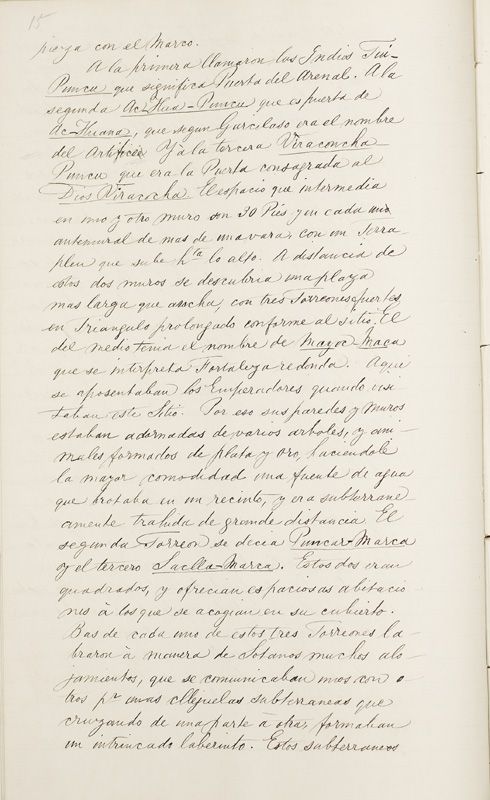 15
pieza con el Marco.
A la primera llamaron los Indios Tiu-
Puncu que significa Puerta del Arenal. A la
segunda Ac-Hua-Puncu que es puerta de
Ac-Huana, que segun Garcilaso era el nombre
del Artifice. Y à la tercera Viraconcha
Puncu que era la Puerta consagrada al
Dios Viracocha. El espacio que intermedia
en uno y otro muro son 30 Pies y en cada uno
antemural de mas de una vara, con un Terra-
plen que sube hta lo alto. A distancia de
estos dos muros se descubria una plaza
mas larga que ancha, con tres Torreones puertos,
en Triangulo prolongado conforme al Sitio. El
del medio tenia el nombre de Mayoc Maca
que se interpreta Fortaleza redonda. Aqui
se aposentaban los Emperadores quando visi
taban este Sitio. Por eso sus paredes y Muros
estaban adornadas de varios arboles, y ani-
males formados de plata y oro, haciendole
la mayor comodidad una fuente de agua
que brotaba en un recinto, y era subterrane
amente trahida de grande distancia. El
segundo Torreon se decia Puncar-Marca
y el tercero Saclla-Marca. Estos dos eran
quadrados, y ofrecian espaciosas abitacio-
nes à los que se acogian en su cubierto.
Bas de cada uno de estos tres Torreones la-
braron à manera de Sotanos muchos alo-
jamientos, que se comunicaban unos con o
tros pr unas callejuelas subterraneas que
cruzando de una parte a otra, formaban
un intrincado laberinto. Estos subterraneos